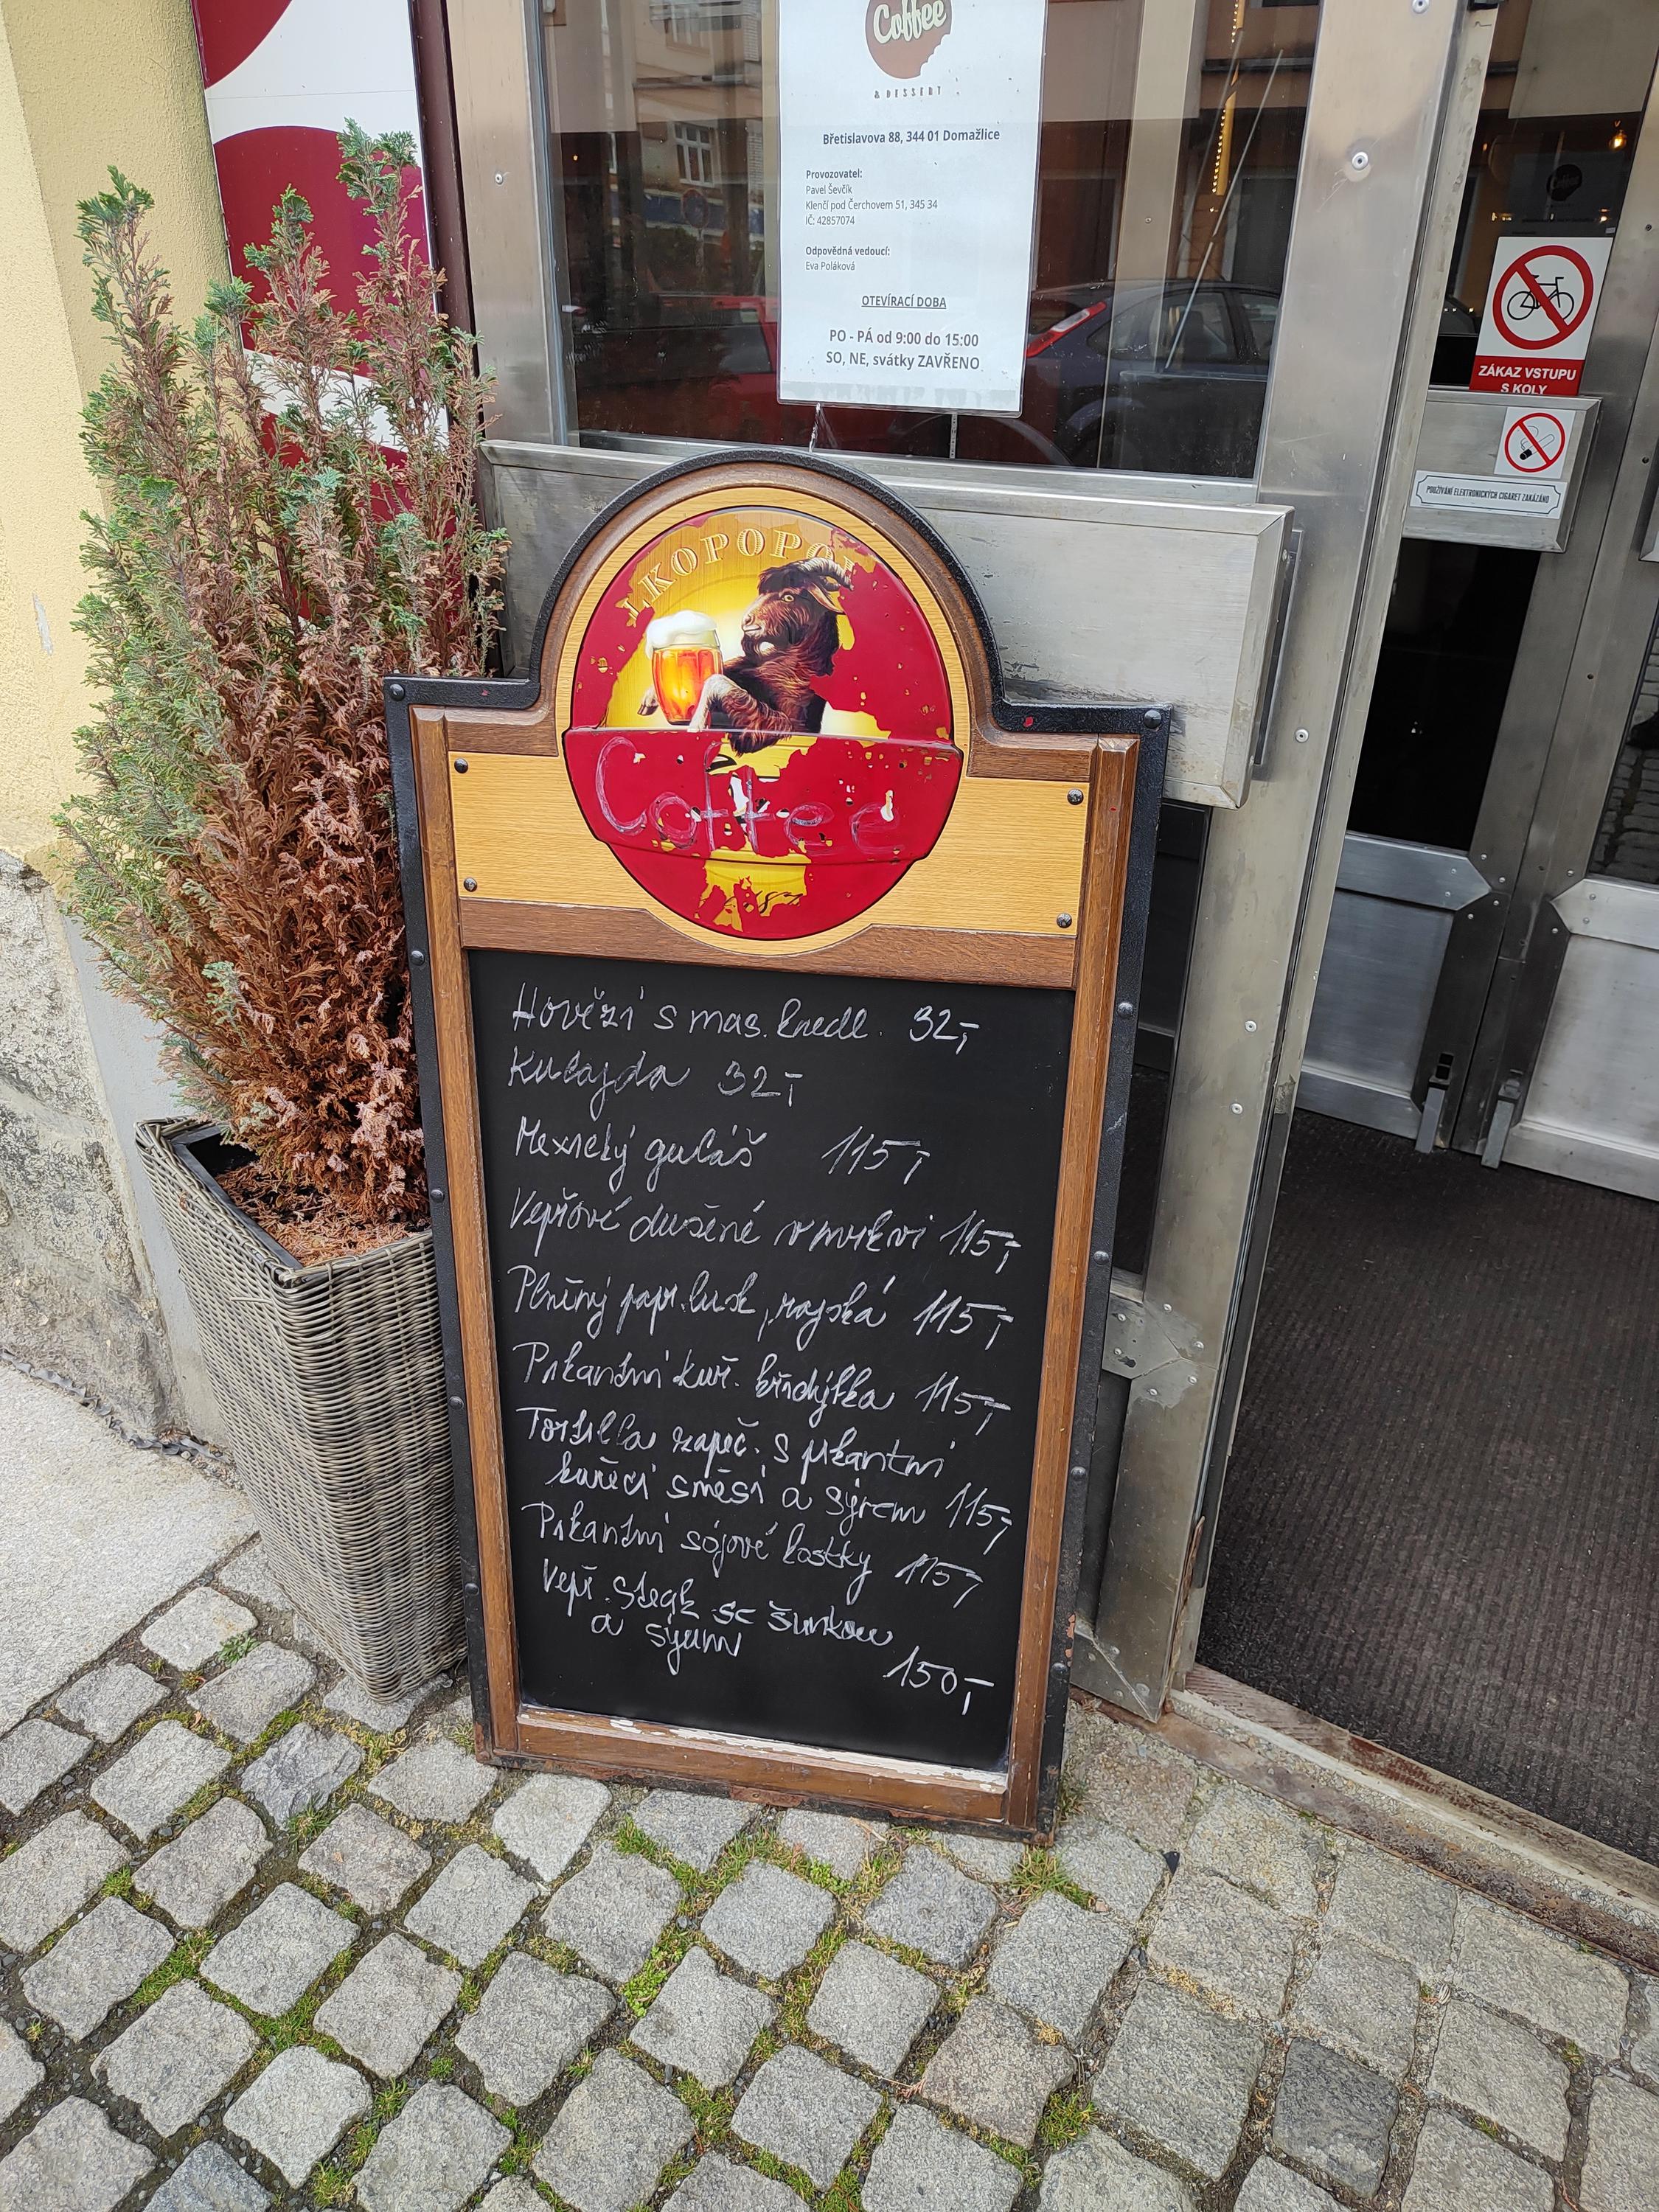 Coffee
& DESSERT
Břetislavova 88, 344 01 Domažlice
Provozovatel:
Pavel Ševčík
Klenčí pod Čerchovem 51, 345 34
IČ: 42857074
Odpovědná vedoucí:
Eva Poláková
OTEVÍRACÍ DOBA
PO - PÁ od 9:00 do 15:00
SO, NE, svátky ZAVŘENO
ZÁKAZ VSTUPU
S KOLY
POUŽÍVÁNÍ ELEKTRONICKÝCH CIGARET ZAKÁZÁNO
LKOPOPO
Coffee
Hovězí s mas. knedl. 32,-
Kulajda 32,-
Mexický guláš 115,-
Vepřové dušené v mrkvi 115,-
Plněný papr. lusk, rajská 115,-
Pikantní kuř. křidýlka 115,-
Tortilla zapeč. s pikantní
kuřecí směsí a sýrem 115,-
Pikantní sójové kostky 115,-
Vepř. steak se šunkou
a sýrem
150,-